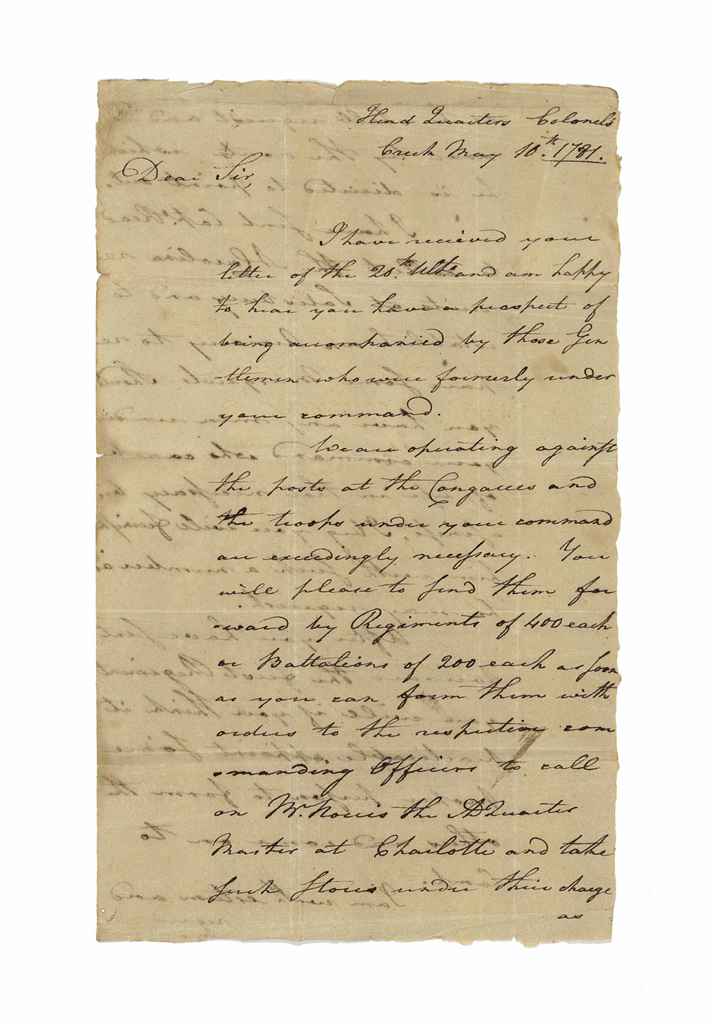 Head Quarters Colonels
Creek May 10th. 1781.
Dear Sir,
I have recieved your
letter of the 20th. Ulto. and am happy
to hear you have a prospect of
being accompanied by those Gen
-tlemen who were formerly under
your command.
We are operating against
the posts at the Congarees and
the troops under your command
are exceedingly necessary. You
will please to send them for
-ward by Regiments of 400 each
or Battalions of 200 each as soon
as you can form them with
orders to the respective com
-manding Officers to call
on Mr. the A Quarter
Master at Charlotte and take
such Stores under their charge
as